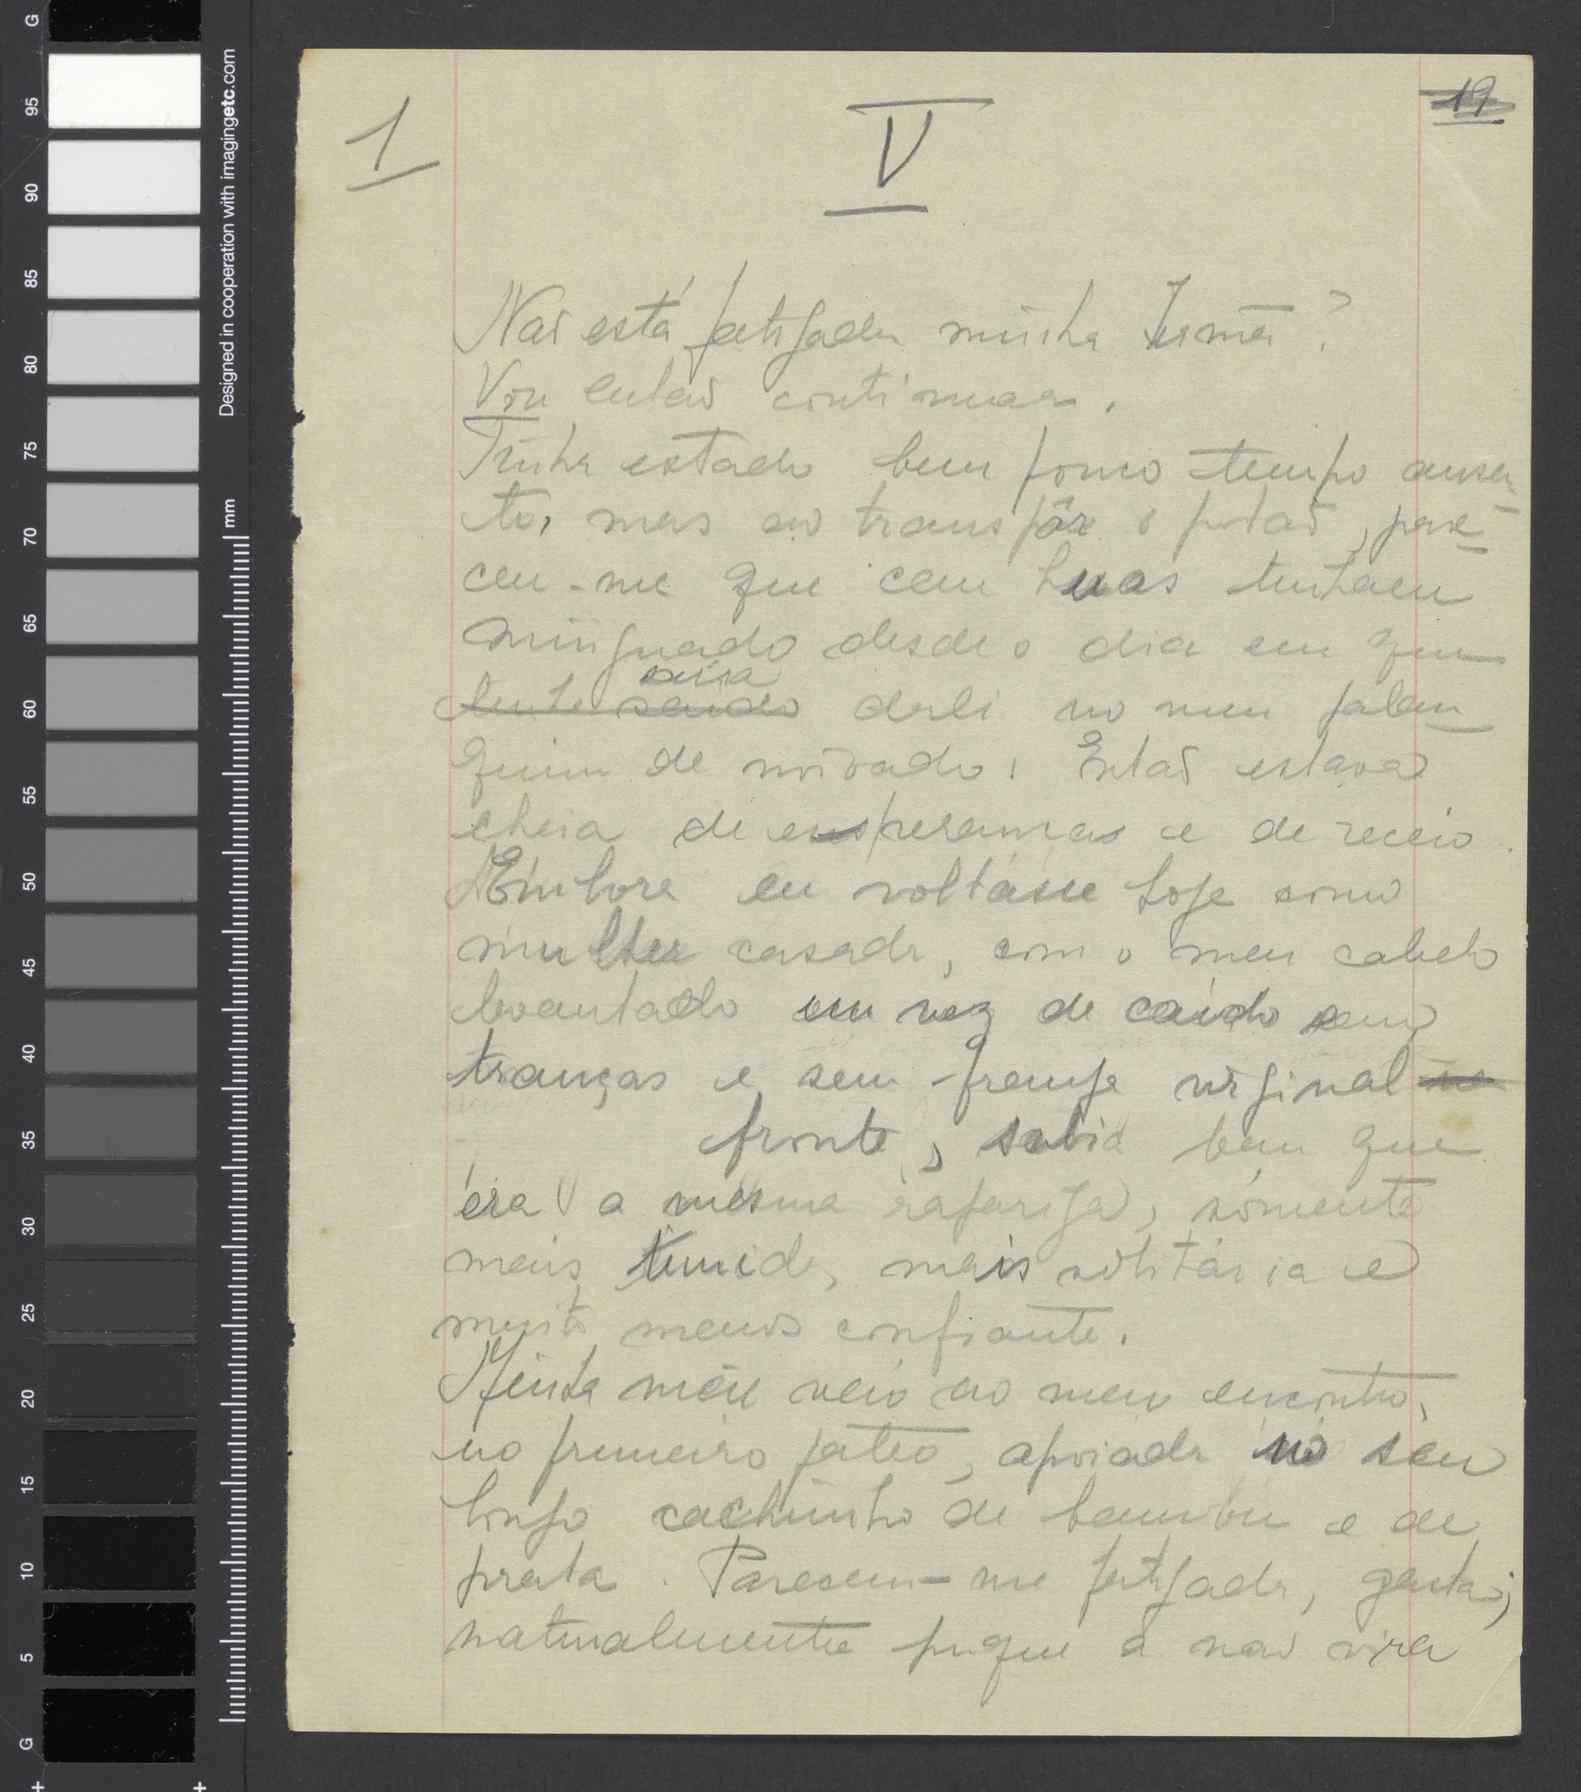 19
1
V
Não está fatigada minha Irmã?
Vou então continuar.
Tinha estado bem pouco tempo ausen-
te, mas ao transpôr o portão, pare-
ceu-me que cem luas tinham
minguado desde o dia em que
saíra
tinha saido dali no meu palan
quim de noivado! Então estava
cheia de esperanças e de receio.
Embora eu voltásse hoje como
mulher casada, com o meu cabelo
levantado em vez de caído em
tranças e sem franja virginal na
fronte, sabia bem que
éra a mesma rapariga, sómente
mais timida, mais solitária e
muito menos confiante.
Minha mãe veio ao meu encontro,
no primeiro pateo, apoiada no seu
longo cachimbo de bambu e de
prata. Pareceu-me fatigada, gasta;
naturalmente porque a não vira
95
90
85
80
75
70
65
60
55
50
45
40
35
30
25
20
15
10
5
G
G
mm
Designed in cooperation with imagingetc.com